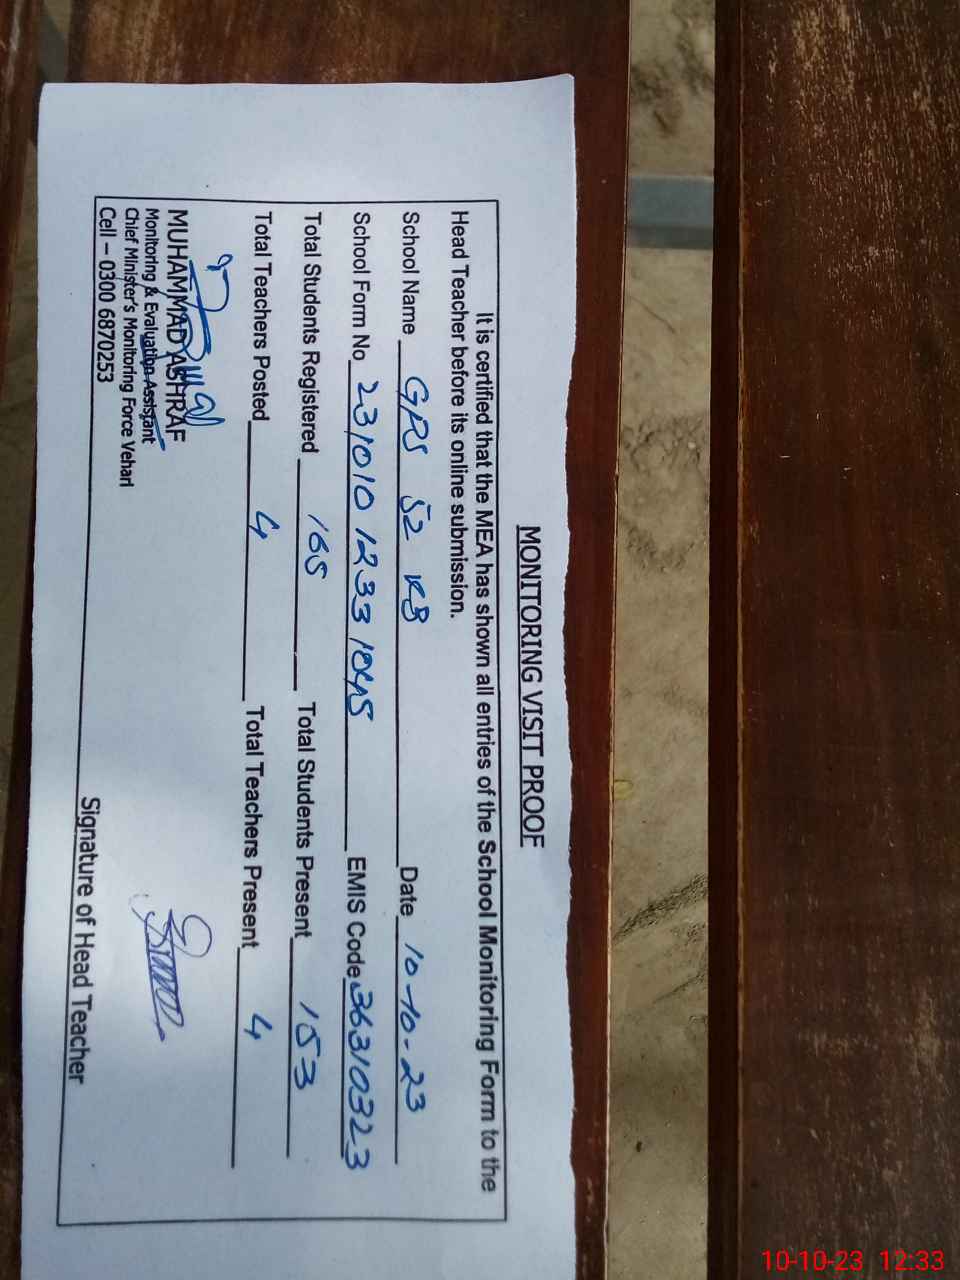 MONITORING VISIT PROOF
It is certified that the MEA has shown all entries of the School Monitoring Form to the
Head Teacher before its online submission.
School Name GPS 52 KB Date 10-10-23
School Form No 231010 1233 1045 EMIS Code 36310323
Total Students Registered 165 Total Students Present 153
Total Teachers Posted 4 Total Teachers Present 4
MUHAMMAD ASHRAF
Monitoring & Evaluation Assistant
Chief Minister's Monitoring Force Vehari
Cell – 0300 6870253
Signature of Head Teacher
10-10-23 12:33